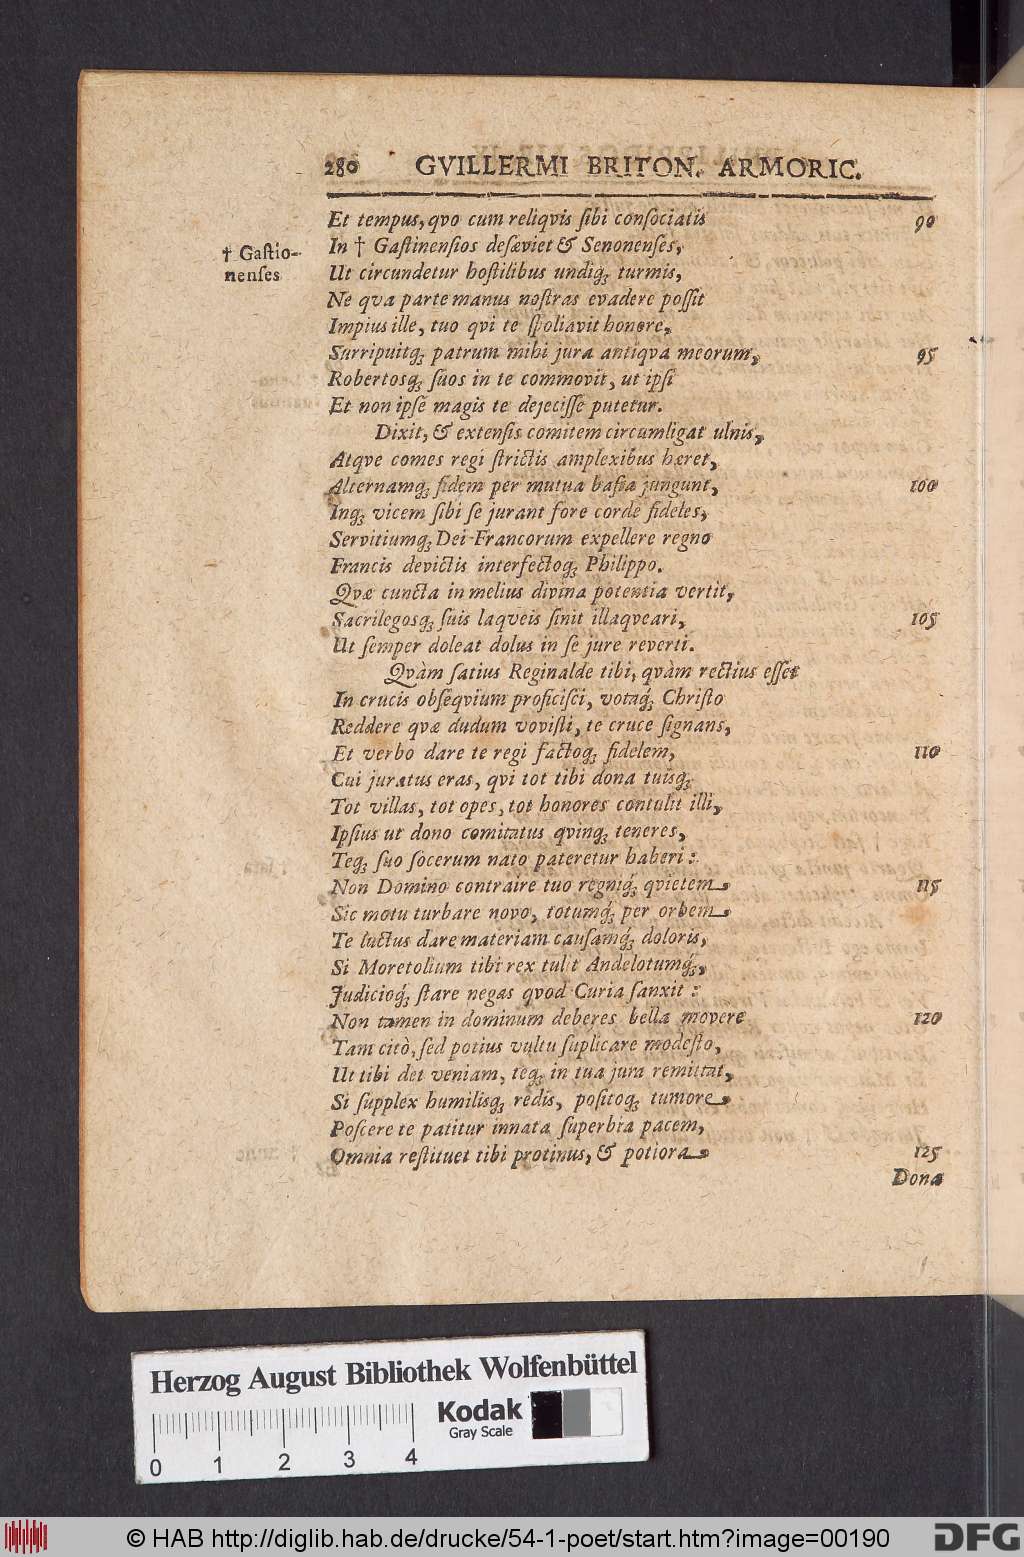 280 GVILLERMI BRITON. ARMORIC.
Et tempus, qvo cum reliqvis ſibi conſociatis 90
† Gaſtio-
nenſes
In † Gaſtinenſios deſæviet & Senonenſes,
Ut circundetur hoſtilibus undiq; turmis,
Ne qva parte manus noſtras evadere poſſit
Impius ille, tuo qvi te ſpoliavit honore,
Surripuitq; patrum mihi jura antiqva meorum, 95
Robertosq; ſuos in te commovit, ut ipſi
Et non ipſe magis te dejeciſſe putetur.
Dixit, & extenſis comitem circumligat ulnis,
Atqve comes regi ſtrictis amplexibus hæret,
Alternamq; fidem per mutua baſia jungunt, 100
Inq; vicem ſibi ſe jurant fore corde fideles,
Servitiumq; Dei Francorum expellere regno
Francis devictis interfectoq; Philippo.
Qvæ cuncta in melius divina potentia vertit,
Sacrilegosq; ſuis laqveis ſinit illaqveari, 105
Ut ſemper doleat dolus in ſe jure reverti.
Qvàm ſatius Reginalde tibi, qvàm rectius eſſet
In crucis obſeqvium proficiſci, votaq́; Chriſto
Reddere qvæ dudum voviſti, te cruce ſignans,
Et verbo dare te regi factoq; fidelem, 110
Cui juratus eras, qvi tot tibi dona tuisq;
Tot villas, tot opes, tot honores contulit illi,
Ipſius ut dono comitatus qvinq; teneres,
Teq; ſuo ſocerum nato pateretur haberi:
Non Domino contraire tuo regniq́; qvietem 115
Sic motu turbare novo, totumq́; per orbem
Te luctus dare materiam cauſamq́; doloris,
Si Moretolium tibi rex tulit Andelotumq́;,
Judicioq́; ſtare negas qvod Curia ſanxit:
Non tamen in dominum deberes bella movere 120
Tam citò, ſed potius vultu ſuplicare modeſto,
Ut tibi det veniam, teq; in tua jura remittat,
Si ſupplex humilisq; redis, poſitoq; tumore
Poſcere te patitur innata ſuperbia pacem,
Omnia reſtituet tibi protinus, & potiora 125
Dona
Herzog August Bibliothek Wolfenbüttel
Kodak
Gray Scale
0 1 2 3 4
© HAB http://diglib.hab.de/drucke/54-1-poet/start.htm?image=00190 DFG